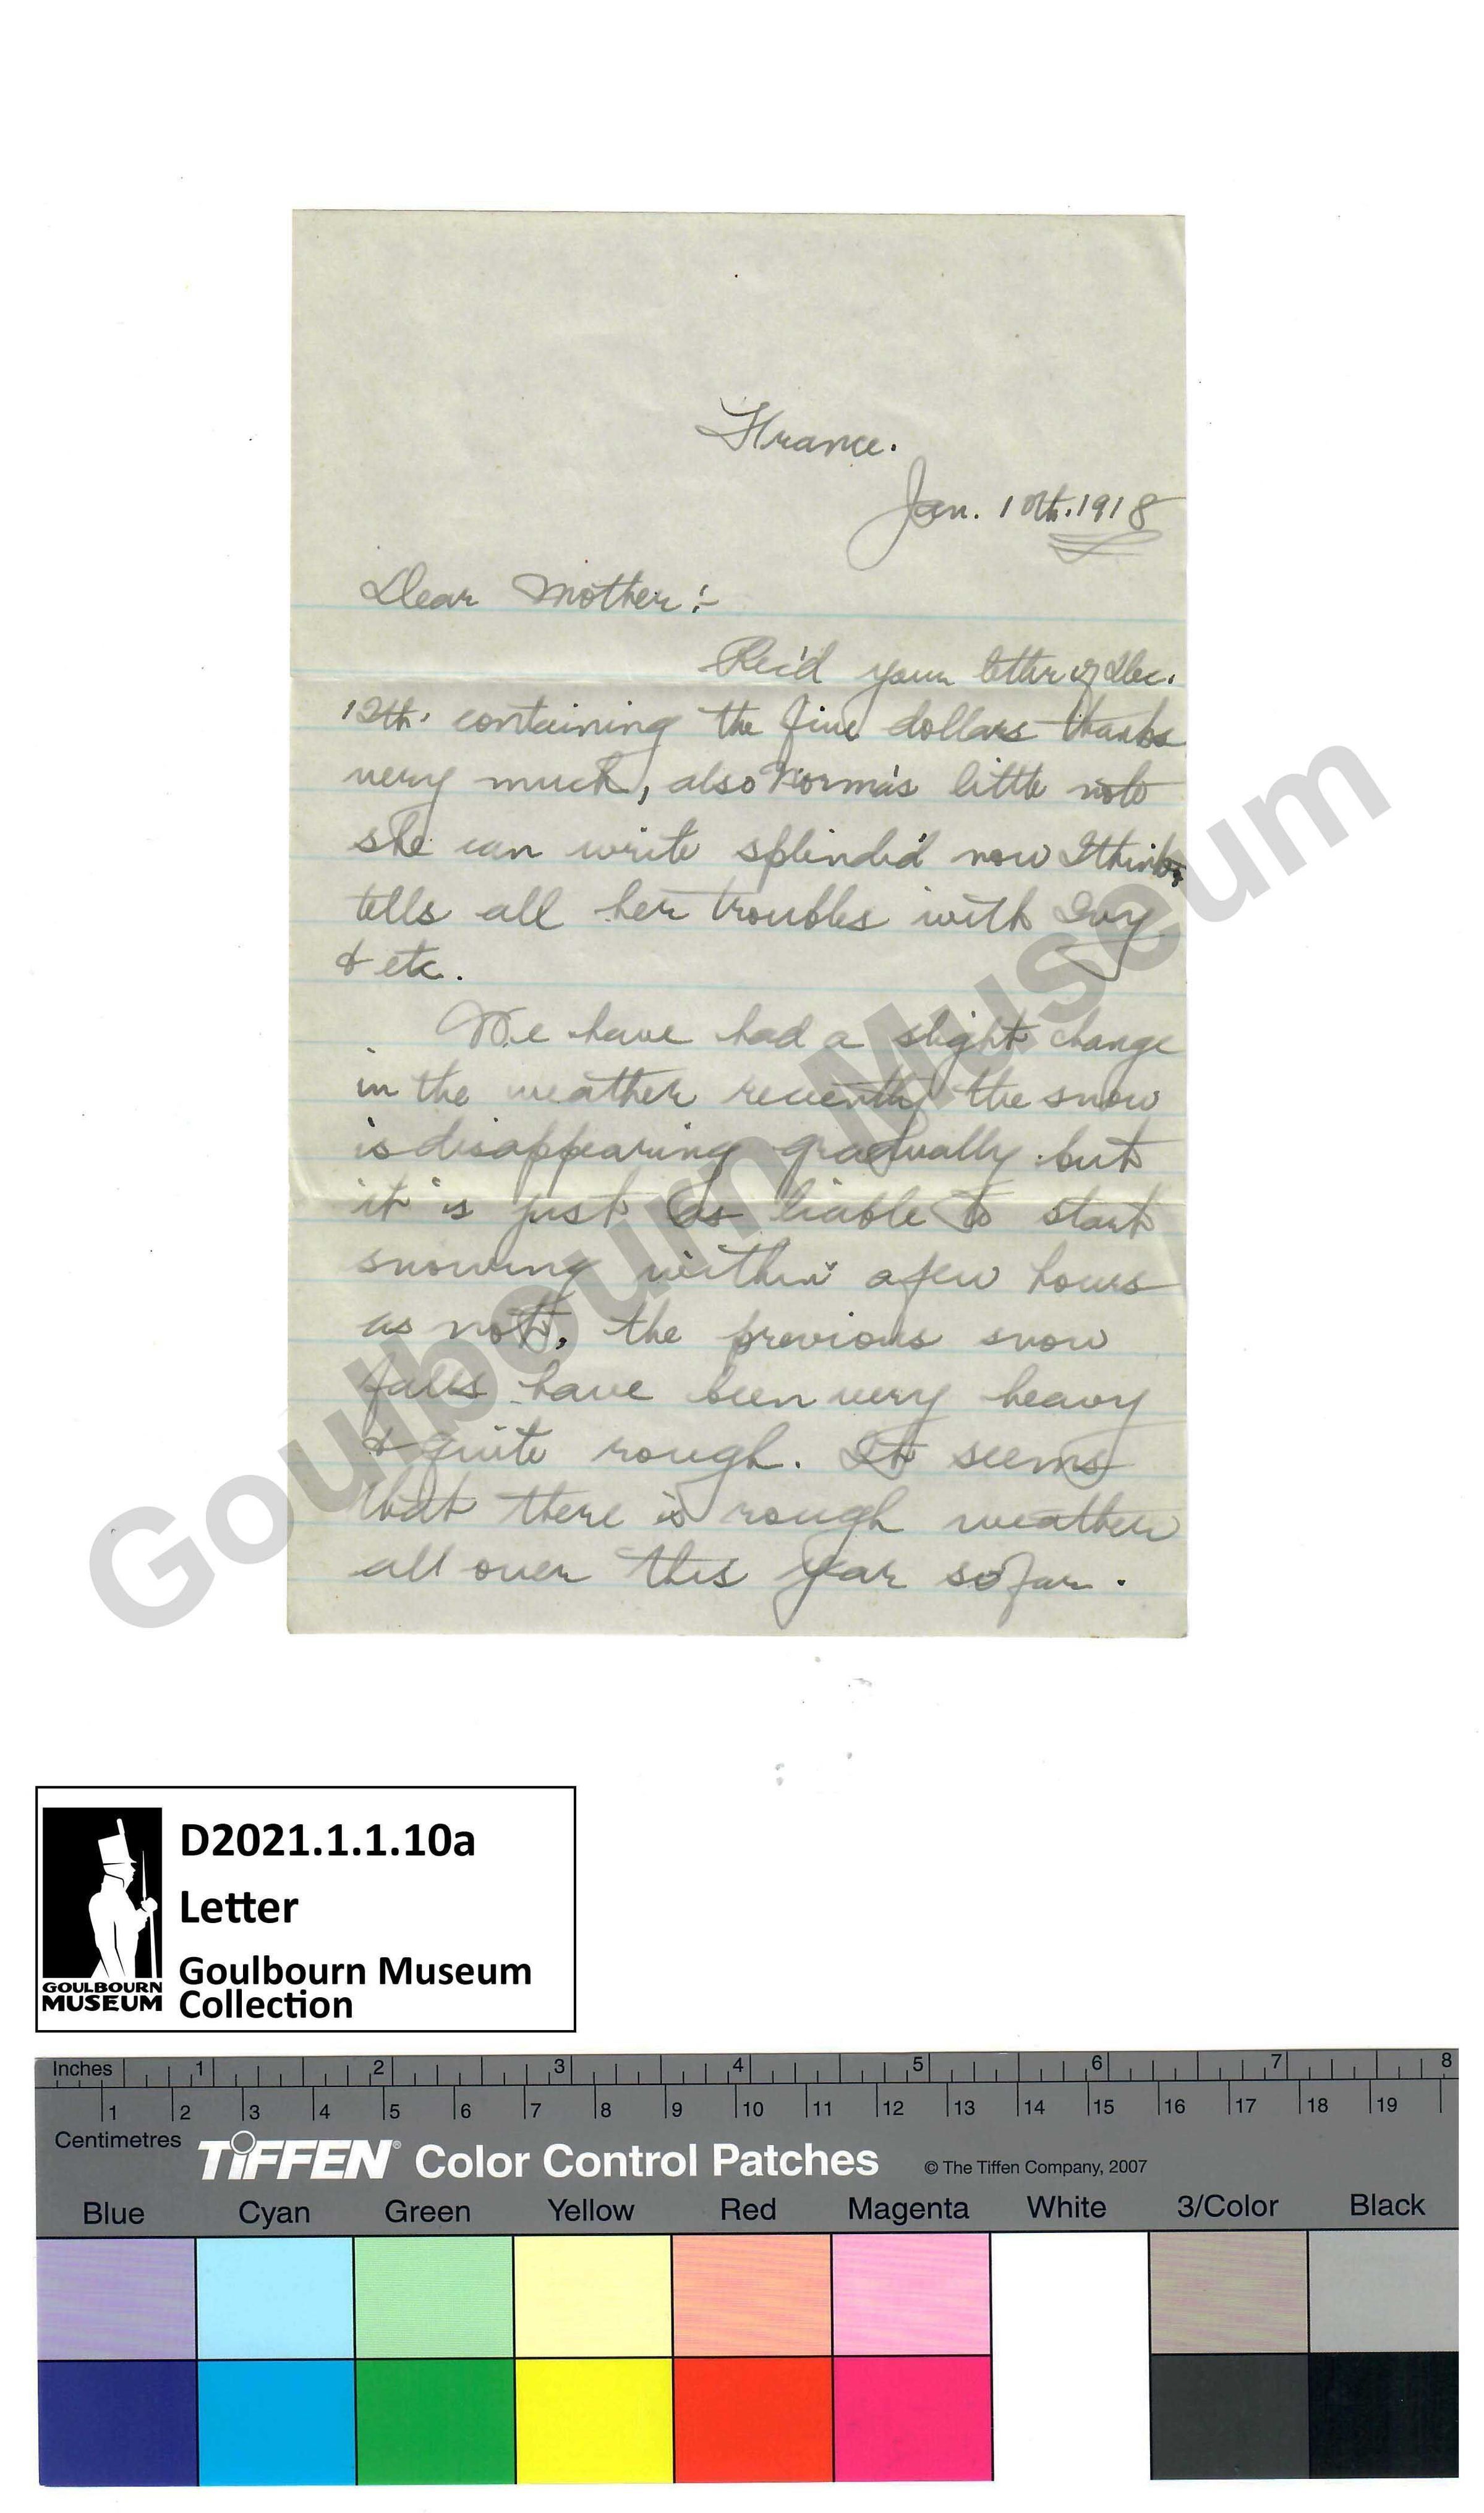 France.
Jan. 10th. 1918
Dear Mother:-
Rec'd your letter of Dec.
12th. containing the five dollars thanks
very much, also Norma's little note
she can write splendid now I think,
tells all her troubles with Ivy
& etc.
We have had a slight change
in the weather recently the snow
is disappearing gradually but
it is just as liable to start
snowing within a few hours
as not, the previous snow
falls have been very heavy
& quite rough. It seems
that there is rough weather
all over this year so far.
Goulbourn Museum
D2021.1.1.10a
Letter
Goulbourn Museum
Collection
GOULBOURN
MUSEUM
Inches 1 2 3 4 5 6 7 8
1 2 3 4 5 6 7 8 9 10 11 12 13 14 15 16 17 18 19
Centimetres
TIFFEN® Color Control Patches © The Tiffen Company, 2007
Blue Cyan Green Yellow Red Magenta White 3/Color Black